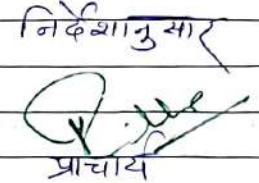 निर्देशानुसार
प्राचार्य